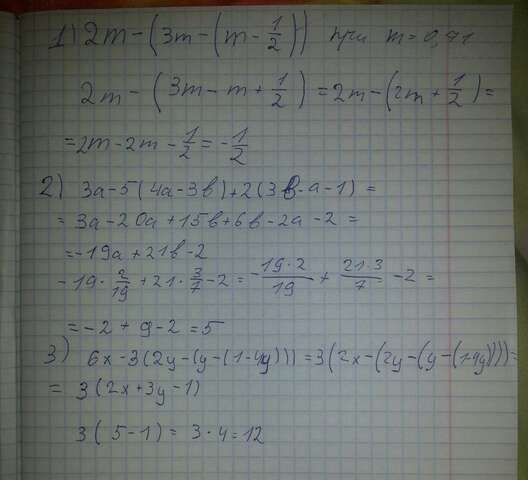 1) 2m-(3m-(m-1/2)) при m=0,71
2m-(3m-m+1/2)=2m-(2m+1/2)=
=2m-2m-1/2=-1/2
2) 3a-5(4a-3b)+2(3b-a-1)=
=3a-20a+15b+6b-2a-2=
=-19a+21b-2
-19·2/19+21·3/7-2=-19·2/19+21·3/7-2=
=-2+9-2=5
3) 6x-3(2y-(y-(1-4y)))=3(2x-(2y-(y-(1-4y))))=
=3(2x+3y-1)
3(5-1)=3·4=12